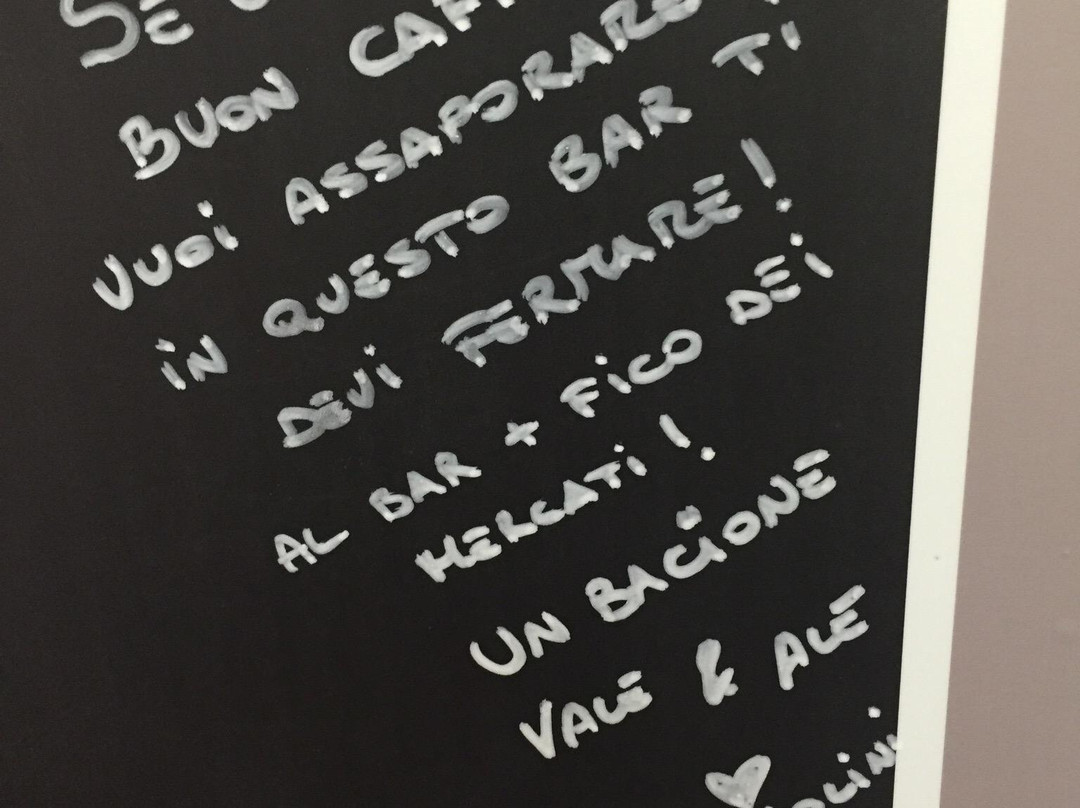 SE
BUON
VUOI ASSAPORARE
IN QUESTO BAR T'
DEVI FERMARE!
AL BAR + FICO DEI
MERCATI!
UN BACIONE
VALE & ALE